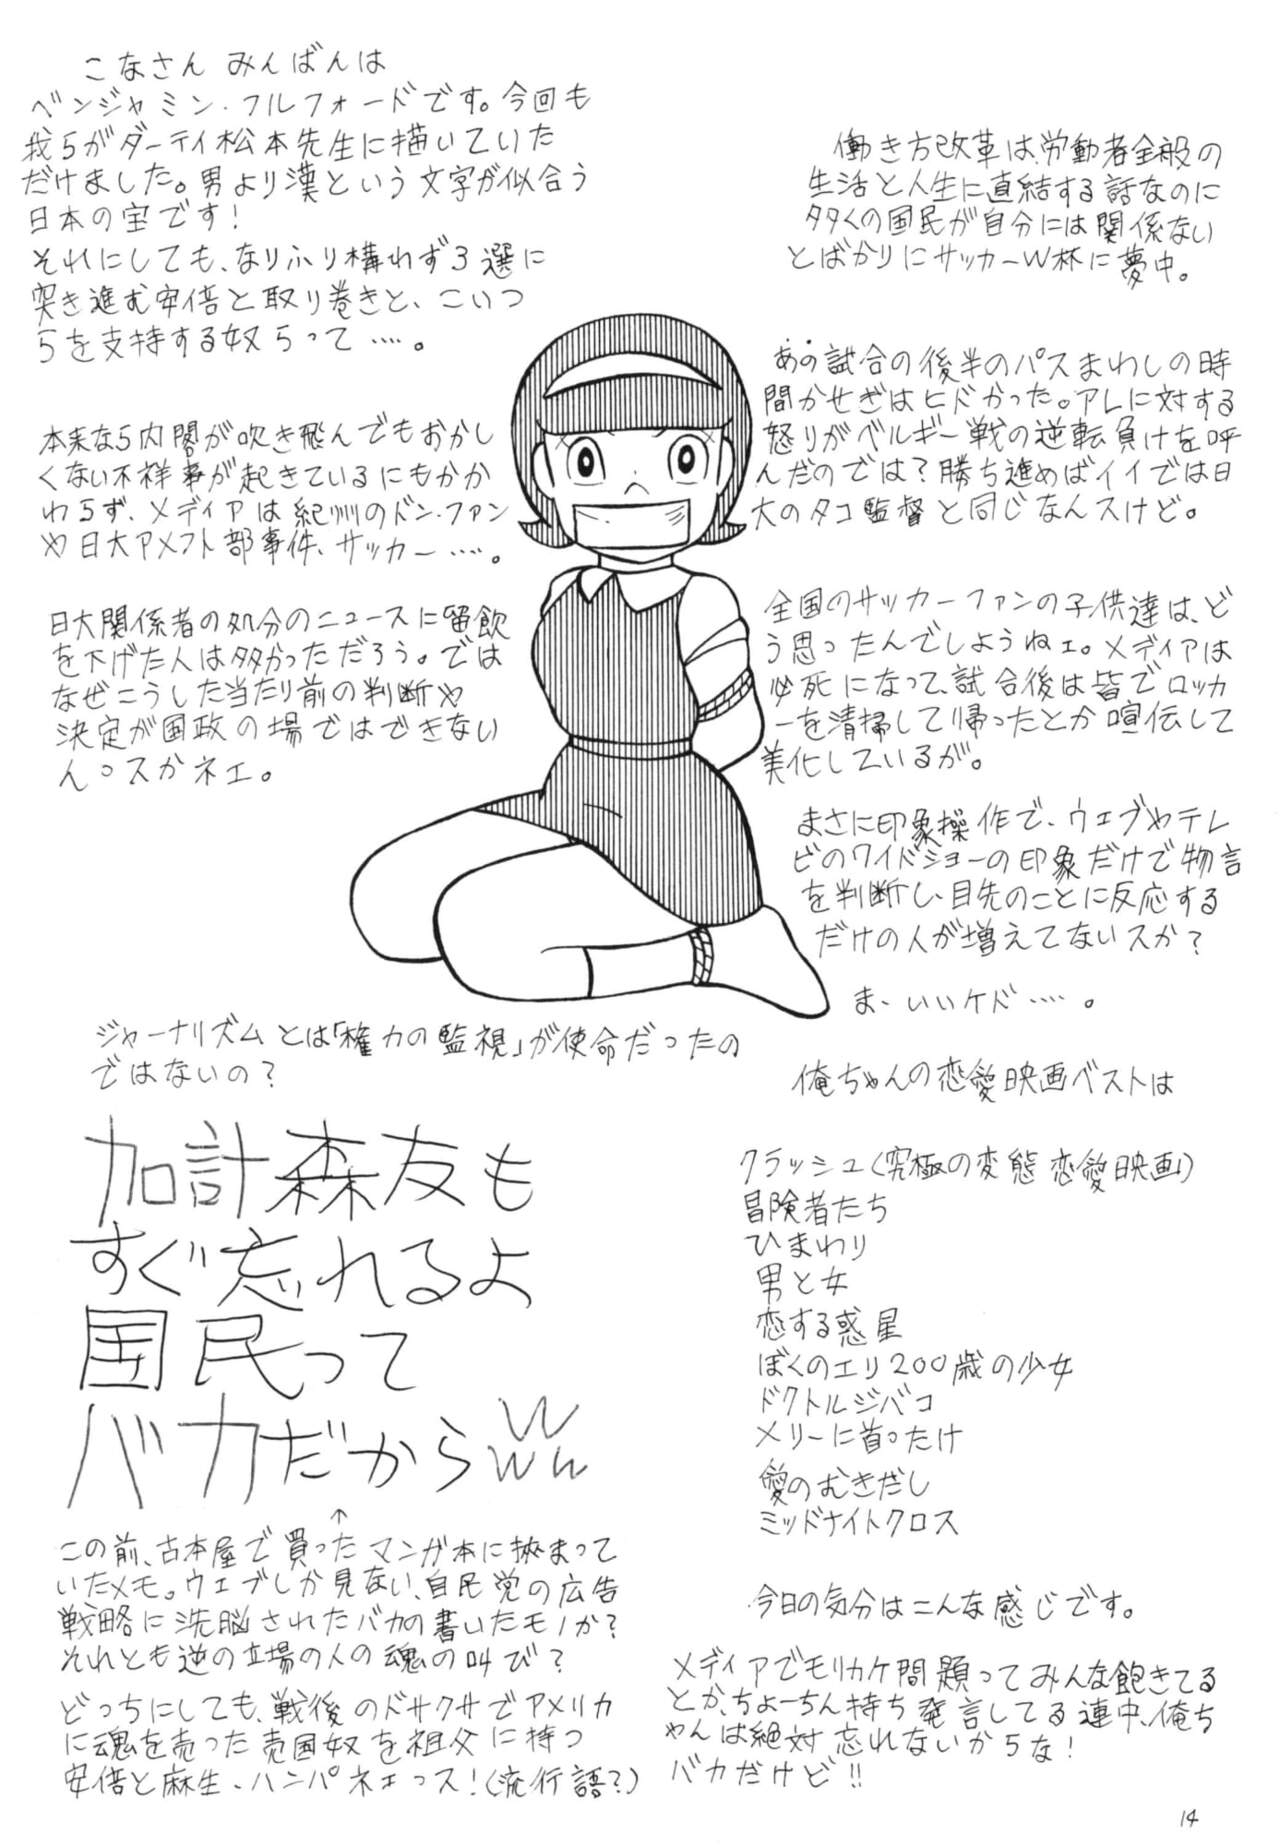 こなさん みんばんは
ベンジャミン・フルフォードです。今回も
我らがダーティ松本先生に描いていた
だけました。男より漢という文字が似合う
日本の宝です！
それにしても、なりふり構わず3選に
突き進む安倍と取り巻きと、こいつ
らを支持する奴らって…。
本来なら内閣が吹き飛んでもおかし
くない不祥事が起きているにもかか
わらず、メディアは紀州のドン・ファン
や日大アメフト部事件、サッカー…。
日大関係者の処分のニュースに留飲
を下げた人は多かっただろう。では
なぜこうした当たり前の判断や
決定が国政の場ではできない
んっスかネェ。
ジャーナリズムとは「権力の監視」が使命だったの
ではないの？
加計森友も
すぐ忘れるよ
国民って
バカだからwwww
↑
この前、古本屋で買ったマンガ本に挾まって
いたメモ。ウェブしか見ない、自民党の広告
戦略に洗脳されたバカの書いたモノか？
それとも逆の立場の人の魂の叫び？
どっちにしても、戦後のドサクサでアメリカ
に魂を売った売国奴を祖父に持つ
安倍と麻生、ハンパネェっス！（流行語？）
働き方改革は、労働者全般の
生活と人生に直結する話なのに
多くの国民が自分には関係ない
とばかりにサッカーW杯に夢中。
あの試合の後半のパスまわしの時
間かせぎはヒドかった。アレに対する
怒りがベルギー戦の逆転負けを呼
んだのでは？勝ち進めばイイでは日
大のタコ監督と同じなんスけど。
全国のサッカーファンの子供達は、ど
う思ったんでしようねェ。メディアは
必死になって、試合後は皆でロッカ
ーを清掃して帰ったとか喧伝して
美化しているが。
まさに印象操作で、ウェブやテレ
ビのワイドショーの印象だけで物言
を判断し、目先のことに反応する
だけの人が増えてないスか？
ま、いいケド…。
俺ちゃんの恋愛映画ベストは
クラッシュ（究極の変態恋愛映画！）
冒険者たち
ひまわり
男と女
恋する惑星
ぼくのエリ200歳の少女
ドクトルジバコ
メリーに首ったけ
愛のむきだし
ミッドナイトクロス
今日の気分はこんな感じです。
メディアでモリカケ問題ってみんな飽きてる
とか、ちょーちん持ち発言してる連中、俺ち
ゃんは絶対忘れないからな！
バカだけど!!
14